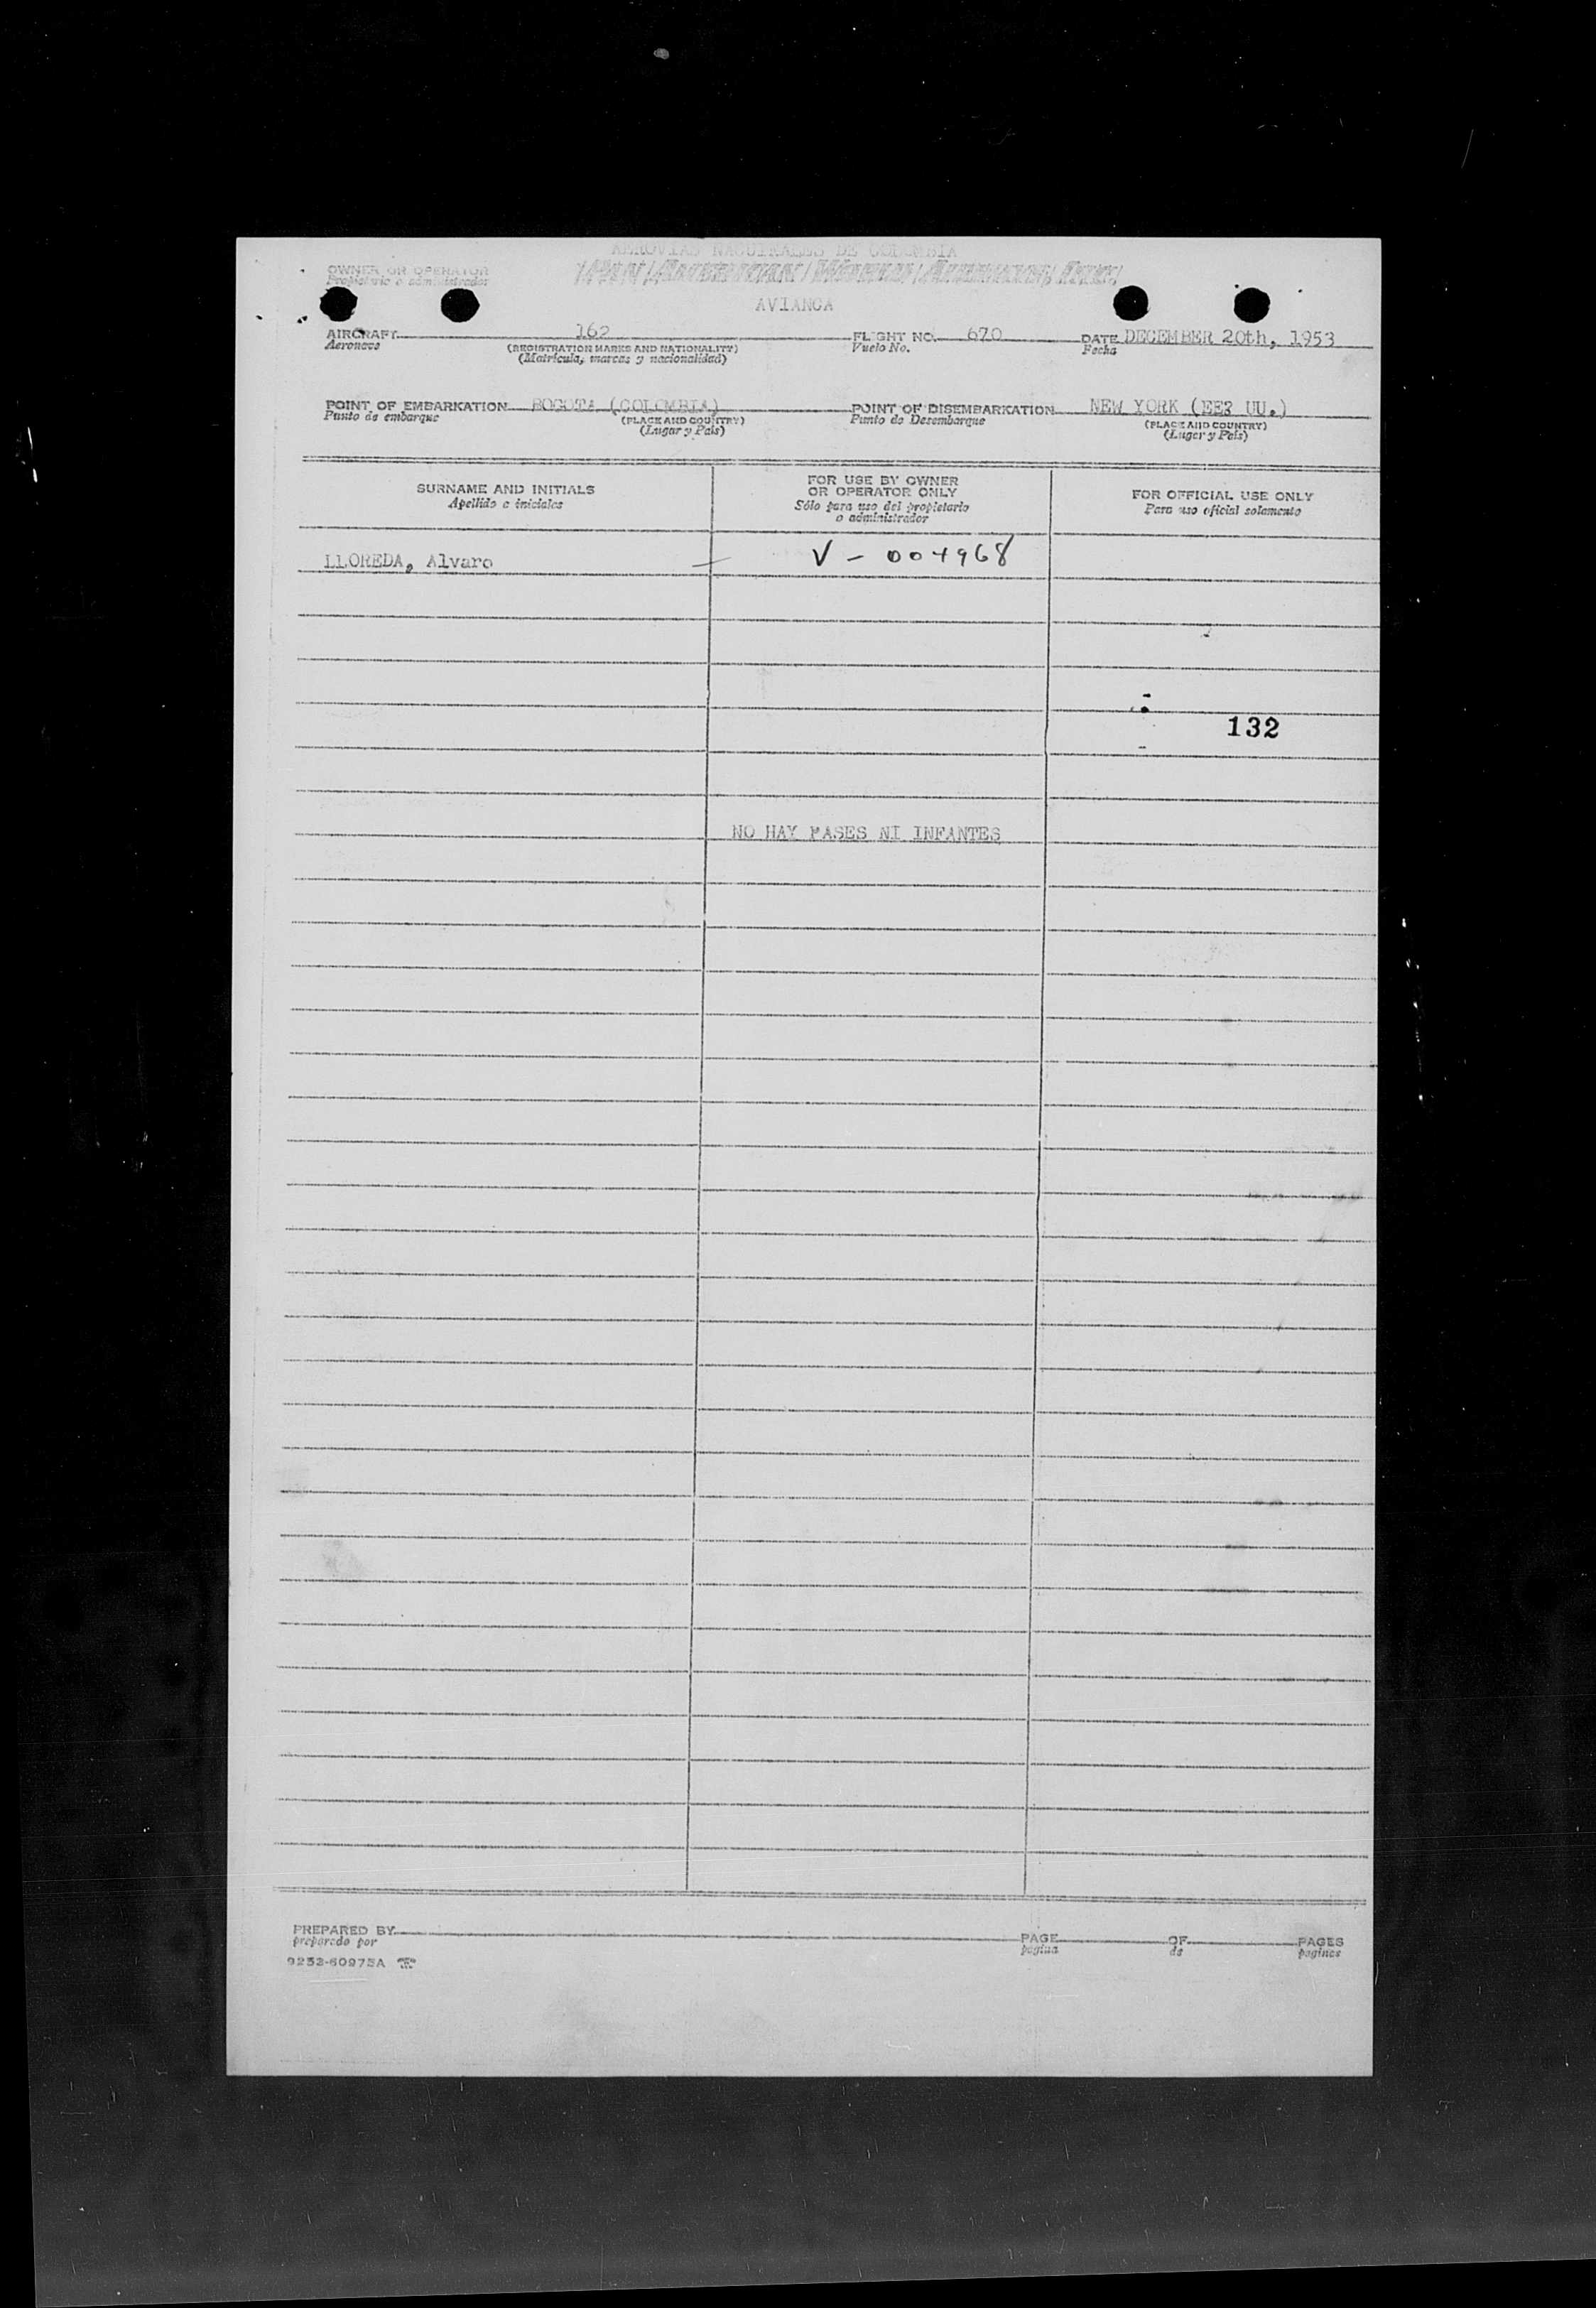 AEROVIAS NACIONALES DE COLOMBIA
OWNER OR OPERATOR PAN AMERICAN WORLD AIRWAYS, INC.
Propietario o administrador
AVIANCA
AIRCRAFT 162 FLIGHT NO. 670 DATE DECEMBER 20th, 1953
Aeronave (REGISTRATION MARKS AND NATIONALITY) Vuelo No. Fecha
(Matrícula, marcas y nacionalidad)
POINT OF EMBARKATION BOGOTA (COLOMBIA) POINT OF DISEMBARKATION NEW YORK (EE UU.)
Punto de embarque (PLACE AND COUNTRY) Punto de Desembarque (PLACE AND COUNTRY)
(Lugar y País) (Lugar y País)
SURNAME AND INITIALS FOR USE BY OWNER OR OPERATOR ONLY FOR OFFICIAL USE ONLY
Apellido e iniciales Sólo para uso del propietario o administrador Para uso oficial solamente
LLOREDA, Alvaro V - 004968
132
NO HAY PASES NI INFANTES
PREPARED BY PAGE OF PAGES
preparado por pagina de paginas
9252-60975A